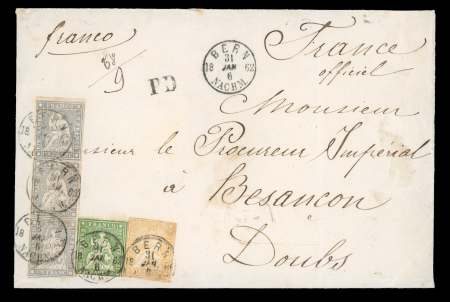 franco
68/9
P.D
BERN
31
18 JAN 62
6
NACHM
France
officiel
Monsieur
Monsieur le Procureur Impérial
à
Besançon
Doubs
FRANCO
BERN
31
JAN
6